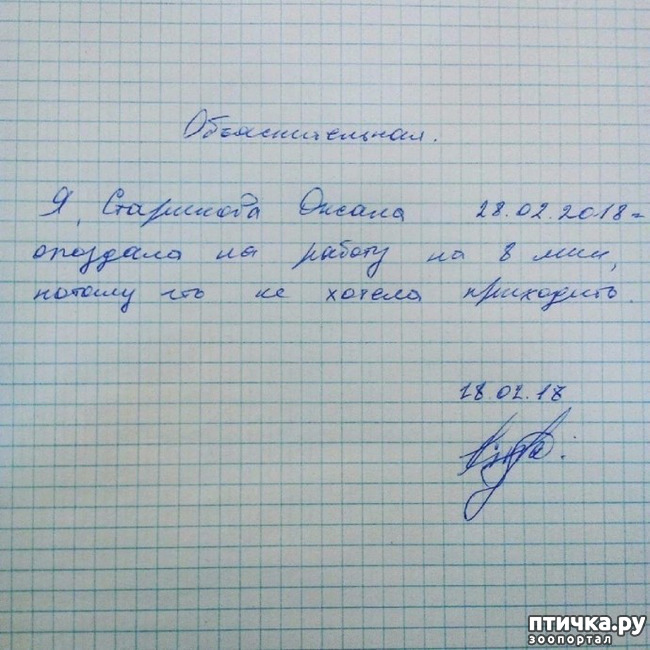 Объяснительная.
Я, Старикова Оксана 28.02.2018г
опоздала на работу на 8 мин,
потому что не хотела приходить.
28.02.18
птичка.ру
зоопортал